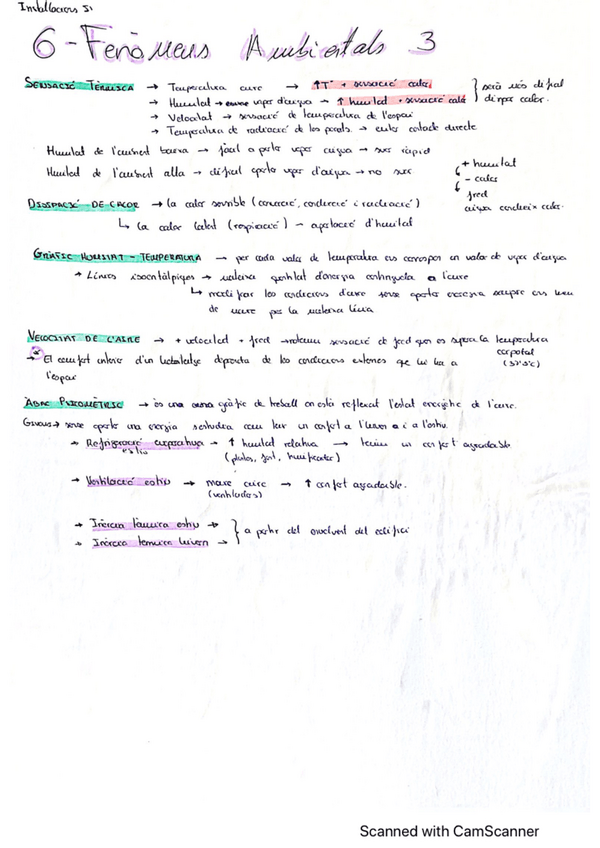 Instal·lacions S1
6 - Fenòmens Ambientals 3
SENSACIÓ TÈRMICA → Temperatura aire → ↑Tª + sensació calor
→ Humitat → vapor d'aigua → ↑ humitat + sensació calor
} serà més difícil dissipar calor.
→ Velocitat → sensació de temperatura de l'espai
→ Temperatura de radiació de les parets → evitar contacte directe
Humitat de l'ambient baixa → fàcil aportar vapor aigua → suor ràpid
Humitat de l'ambient alta → difícil aportar vapor d'aigua → no suor
+ humitat
- calor
fred
aigua condueix calor.
DISSIPACIÓ DE CALOR → la calor sensible (convecció, conducció i radiació)
↳ la calor latent (respiració) → aportació d'humitat
GRÀFIC HUMITAT - TEMPERATURA → per cada valor de temperatura ens correspon un valor de vapor d'aigua
→ Línies isoentàlpiques → mateixa quantitat d'energia continguda a l'aire
↳ modificar les condicions d'aire sense aportar energia sempre ens hem
de moure per la mateixa línia
VELOCITAT DE L'AIRE → + velocitat + fred → sensació de fred quan es supera la temperatura
corporal
(37'5ºC)
→ El confort interior d'un habitatge dependrà de les condicions externes que hi ha a
l'espai
ÀBAC PSICOMÈTRIC → és una gràfic de treball on està reflexat l'estat energètic de l'aire.
Givoni → sense aportar una energia com tenir un confort a l'hivern o a l'estiu.
→ Refrigeració evaporativa → ↑ humitat relativa → tenim un confort agradable
estiu
(plantes, font, humificador)
→ Ventilació estiu → moure aire → ↑ confort agradable.
(ventiladors)
→ Inèrcia tèrmica estiu →
→ Inèrcia tèrmica hivern →
} a partir del envolvent del edifici
Scanned with CamScanner